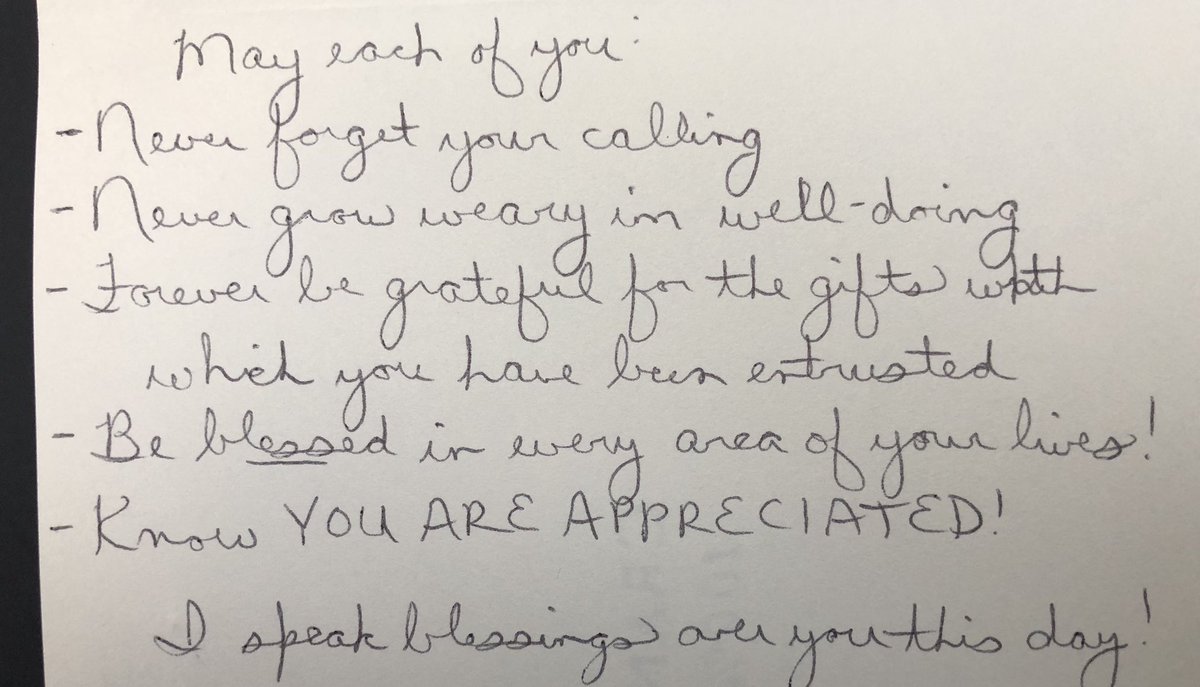 May each of you:
- Never forget your calling
- Never grow weary in well-doing
- Forever be grateful for the gifts with
which you have been entrusted
- Be blessed in every area of your lives!
- Know YOU ARE APPRECIATED!
I speak blessings over you this day!